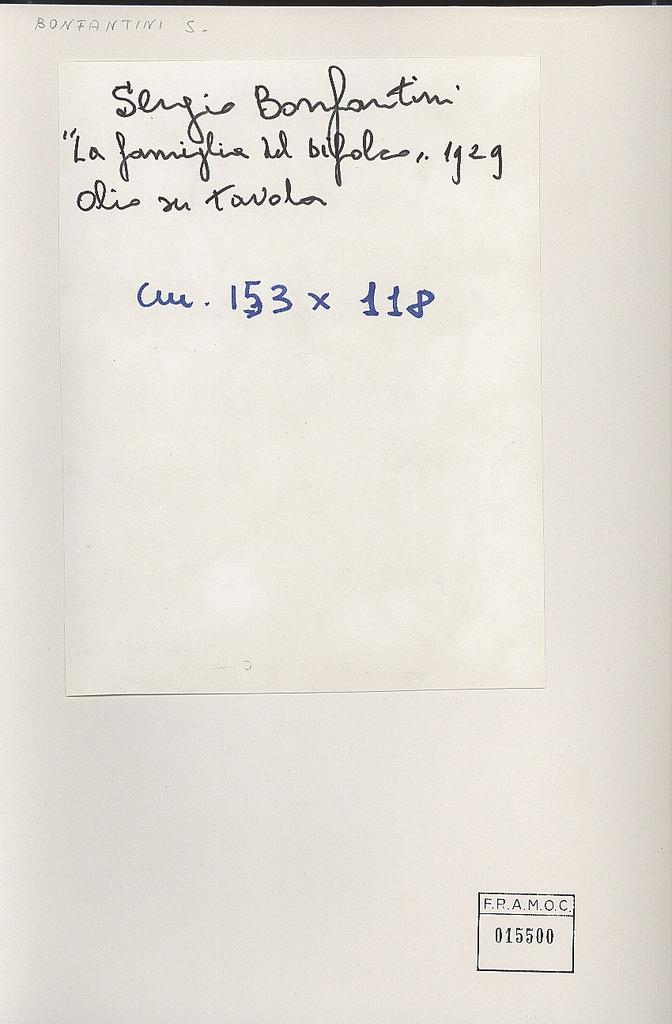 BONFANTINI S.
Sergio Bonfantini
"La famiglia del bifolco„ 1929
Olio su tavola
cm. 153 x 118
F.R.A.M.O.C.
015500